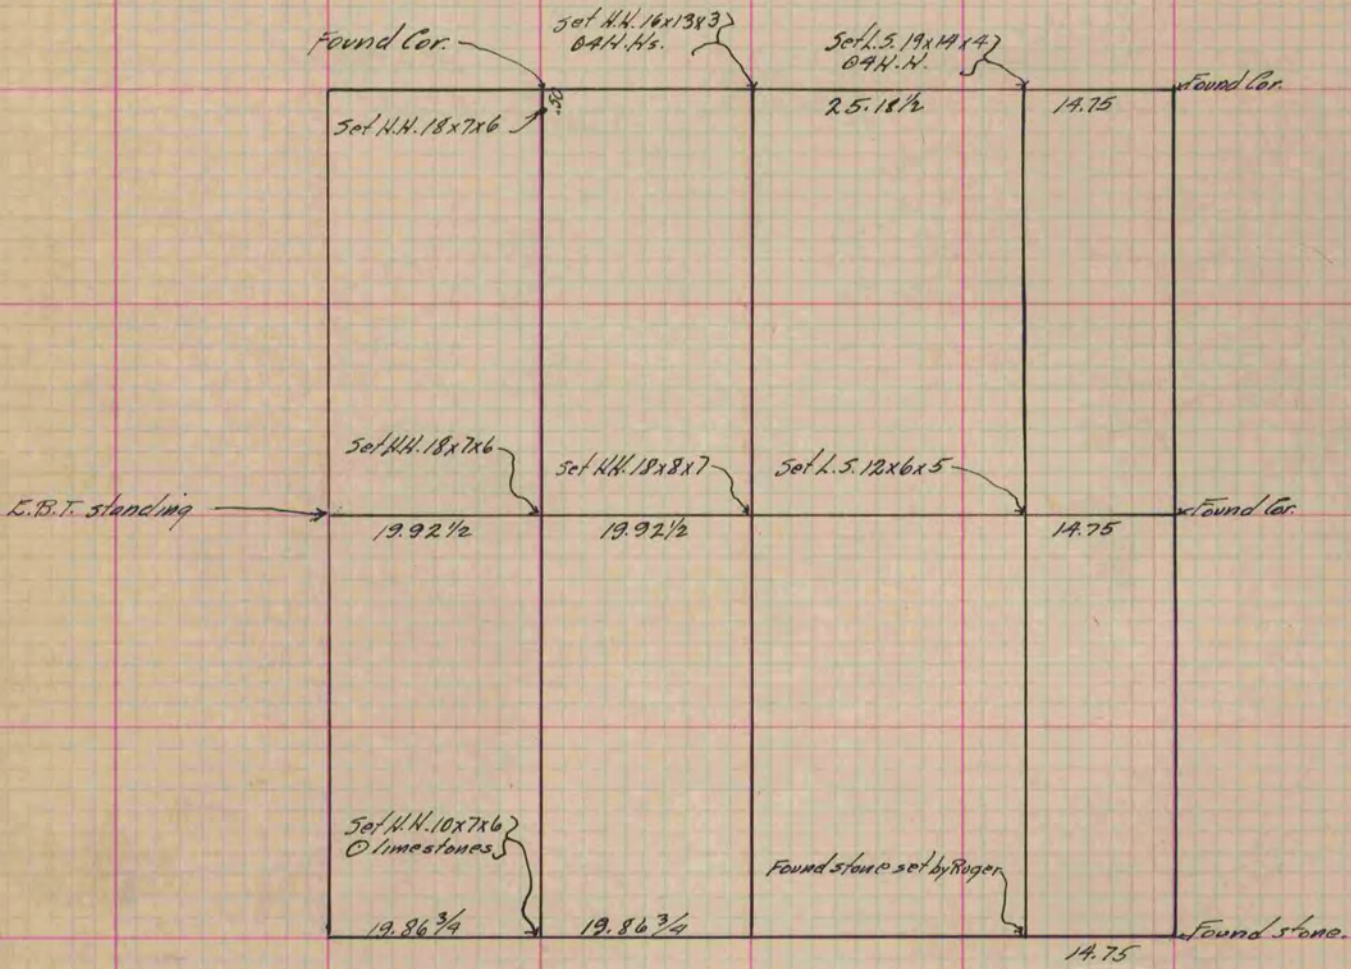 Found Cor.
Set H.H. 16x13x3
⊙4H.Hs.
Set L.S. 19x14x4
⊙4H.H.
Found Cor.
.50
25.18½
14.75
Set H.H. 18x7x6
Set H.H. 18x7x6
Set H.H. 18x8x7
Set L.S. 12x6x5
E.B.T. standing
Found Cor.
19.92½
19.92½
14.75
Set H.H. 10x7x6
⊙ limestones
Found stone set by Ruger
19.86¾
19.86¾
Found stone.
14.75